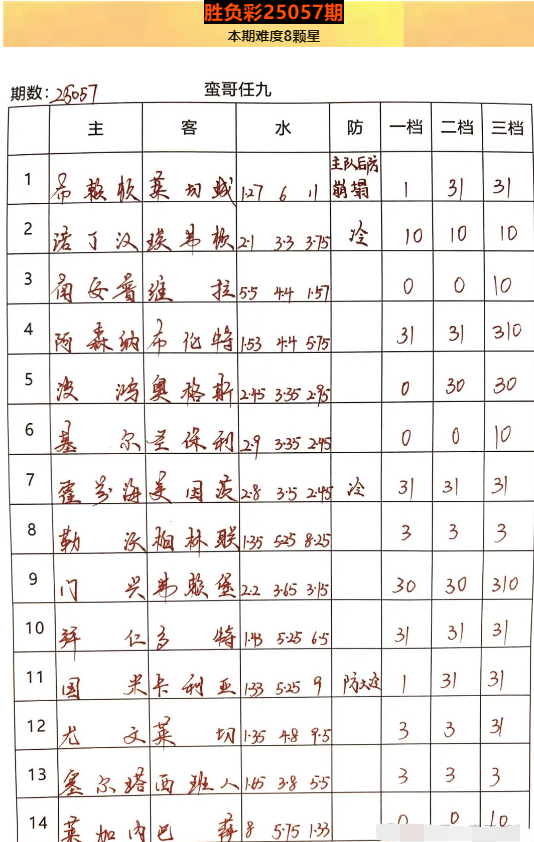 胜负彩25057期
本期难度8颗星
期数: 25057 蛮哥任九
主 客 水 防 一档 二档 三档
1 布赖顿 莱切城 1.27 6 11 主队后防崩塌 1 31 31
2 诺丁汉 埃弗顿 2.1 3.3 3.75 冷 10 10 10
3 南安普 维拉 5.5 4.4 1.57 0 0 10
4 阿森纳 布伦特 1.53 4.4 5.75 31 31 310
5 波鸿 奥格斯 2.45 3.35 2.95 0 30 30
6 基尔 圣保利 2.9 3.35 2.45 0 0 10
7 霍芬海 美因茨 2.8 3.5 2.45 冷 31 31 31
8 勒沃 柏林联 1.35 5.25 8.25 3 3 3
9 门兴 弗赖堡 2.2 3.65 3.15 30 30 310
10 拜仁 多特 1.43 5.25 6.5 31 31 31
11 国米 卡利亚 1.33 5.25 9 防大冷 1 31 31
12 尤文 莱切 1.35 4.8 9.5 3 3 31
13 塞尔塔 西班人 1.65 3.8 5.5 3 3 3
14 莱加内 巴萨 8 5.75 1.33 0 0 10